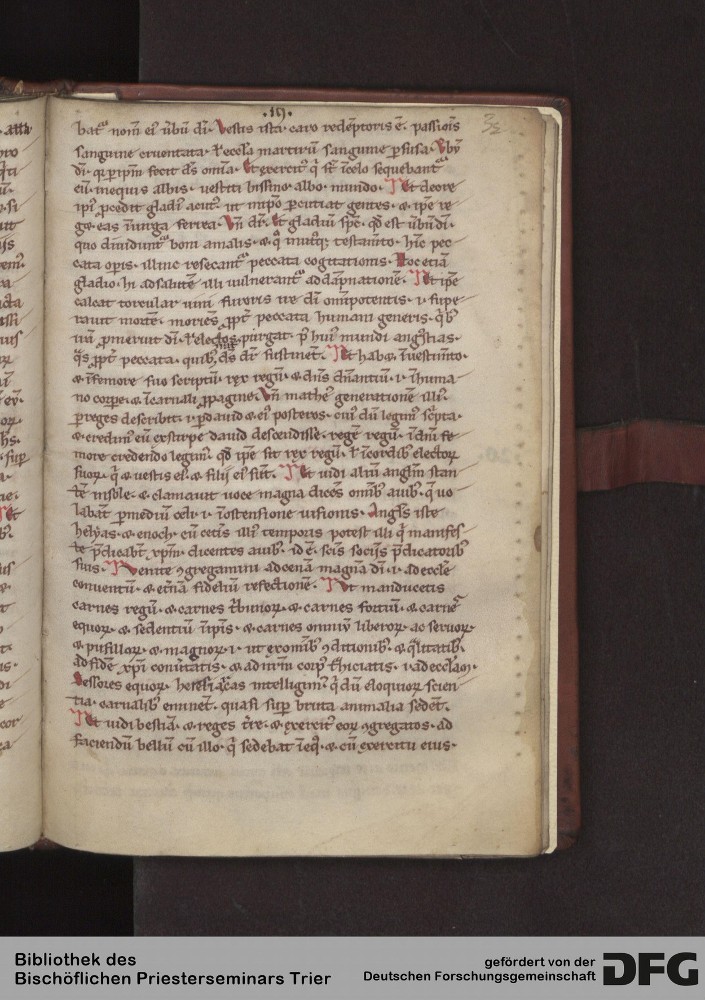 .19.
32
bat᷑ nom̅ ei᷒ u̅bu̅ di̅. Vestis ista caro rede̅ptoris e̅. passio̅is
sanguine cruentata. ł eccła martiru̅ sanguine ꝑfusa. Vbu̅
di̅. q̓ ꝑ ip̅m fecit d̅s om̅ia. Et exercit᷒ q̓ s̅t i̅ celo sequebant᷑
eu̅ in equis albis. uestiti bissino albo mundo. Et de ore
ipi᷒ p̱cedit gladi᷒ acut᷒. ut in ip̅o ꝑcutiat gentes. & ip̅e re
ge& eas i̅ uirga ferrea. Vn̅ dr̅. Et gladiu̅ sp̅c. qd̅ est u̅bu̅ di̅.
quo diuidunt᷑ boni a malis. & q̓ in utq; testam̅to. hi̅c pec
cata opis. illinc resecant᷑ peccata cogitationis. Hoc etia̅
gladio. hi ad salute̅ illi uulnerant᷑ ad da̅pnatione̅. Et ip̅e
calcat torcular uini furoris ire di̅ om̅ipotentis. i. supe
rauit morte̅. morie̅s ꝓpt̅ peccata humani generis. q̓b᷒
ira̅ ꝓmeruit di̅. ł electos suos purgat. ꝑ hui᷒ mundi angustias.
q̓s ꝓpt̅ peccata. quib᷒ d̅s dr̅ sustinet. Et hab& i̅ uestim̅to.
& i̅ femore suo scriptu̅. rex regu̅. & d̅ns d̅nantiu̅. i. i̅ huma
no corpe. & i̅ carnali ꝓpagine. Vn̅ mathe᷒ generatione̅ illi᷒
ꝑ reges describit. i. ꝑ dauid & ei᷒ posteros. cui᷒ du̅ legim᷒ sc̅pta.
& credim᷒ eu̅ ex stirpe dauid descendisse. rege̅ regu̅. i̅ d̅ni fe
more credendo legim᷒. qd̅ ip̅e sit rex regu̅. ł i̅ cordib᷒ electoꝝ
suoꝝ. q̓ & uestis ei᷒ & filii ei᷒ s̅t. Et uidi aliu̅ angl̅m stan
te̅ in sole. & clamauit uoce magna dice̅s om̅ib᷒ auib᷒. q̓ uo
labant ꝑ mediu̅ celi. i. i̅ ostensione uisionis. Angl̅s iste
helyas. & enoch. cu̅ cet̅is illi᷒ temporis potest illi q̓ manifes
te p̅dicabt̅ xp̅m. dicentes auib᷒. id e̅. scis sociis p̅dicatorib᷒
suis. Venite ꝯgregamini ad cena̅ magna̅ di̅. i. ad eccl̅e
conuentu̅. & et̅na̅ fideliu̅ refectione̅. Vt manducetis
carnes regu̅. & carnes t̅bunoꝝ. & carnes fortiu̅. & carne᷑
equoꝝ. & sedentiu̅ i̅ ipis. & carnes omniu̅ liberoꝝ. ac seruoꝝ.
& pusilloꝝ. & magnoꝝ. i. ut ex om̅ib᷒ ꝯditionib᷒. & q̓litatib᷒.
Sessores equoꝝ. heresiarcas intelligim᷒. q̓ du̅ eloquioꝝ scien
tia. carnalib᷒ eminet. quasi sup̱ bruta animalia sede̅t.
Et uidi bestia̅. & reges t̅re. & exercit᷒ eoꝝ ꝯgregatos. ad
faciendu̅ bellu̅ cu̅ illo. q̓ sedebat i̅ eq̊. & cu̅ exercitu eius.
Bibliothek des
Bischöflichen Priesterseminars Trier
gefördert von der
Deutschen Forschungsgemeinschaft
DFG